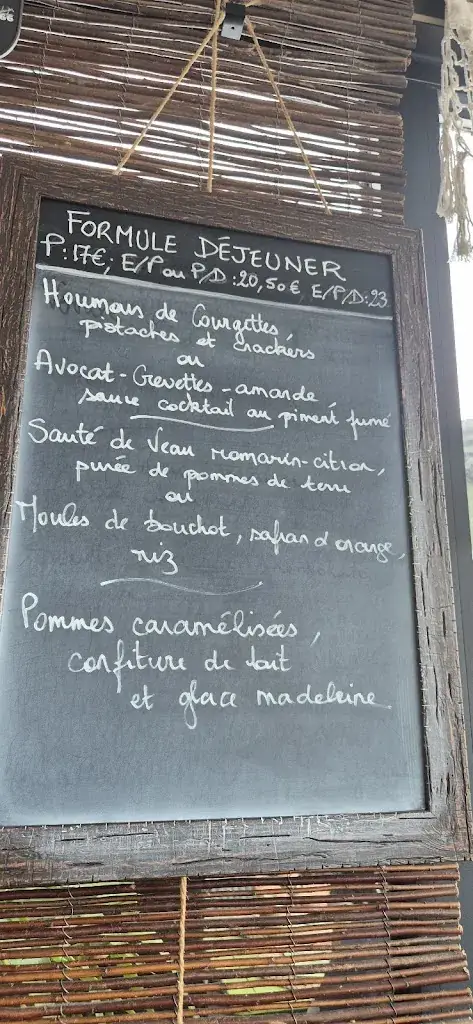 FORMULE DÉJEUNER
P:17€; E/P ou P/D:20,50€ E/P/D:23
Houmous de Courgettes,
pistaches et crackers
ou
Avocat-Crevettes-amande
sauce cocktail au piment fumé
Sauté de Veau romarin-citron,
purée de pommes de terre
ou
Moules de bouchot, safran d'orange,
riz
Pommes caramélisées,
confiture de lait
et glace madeleine